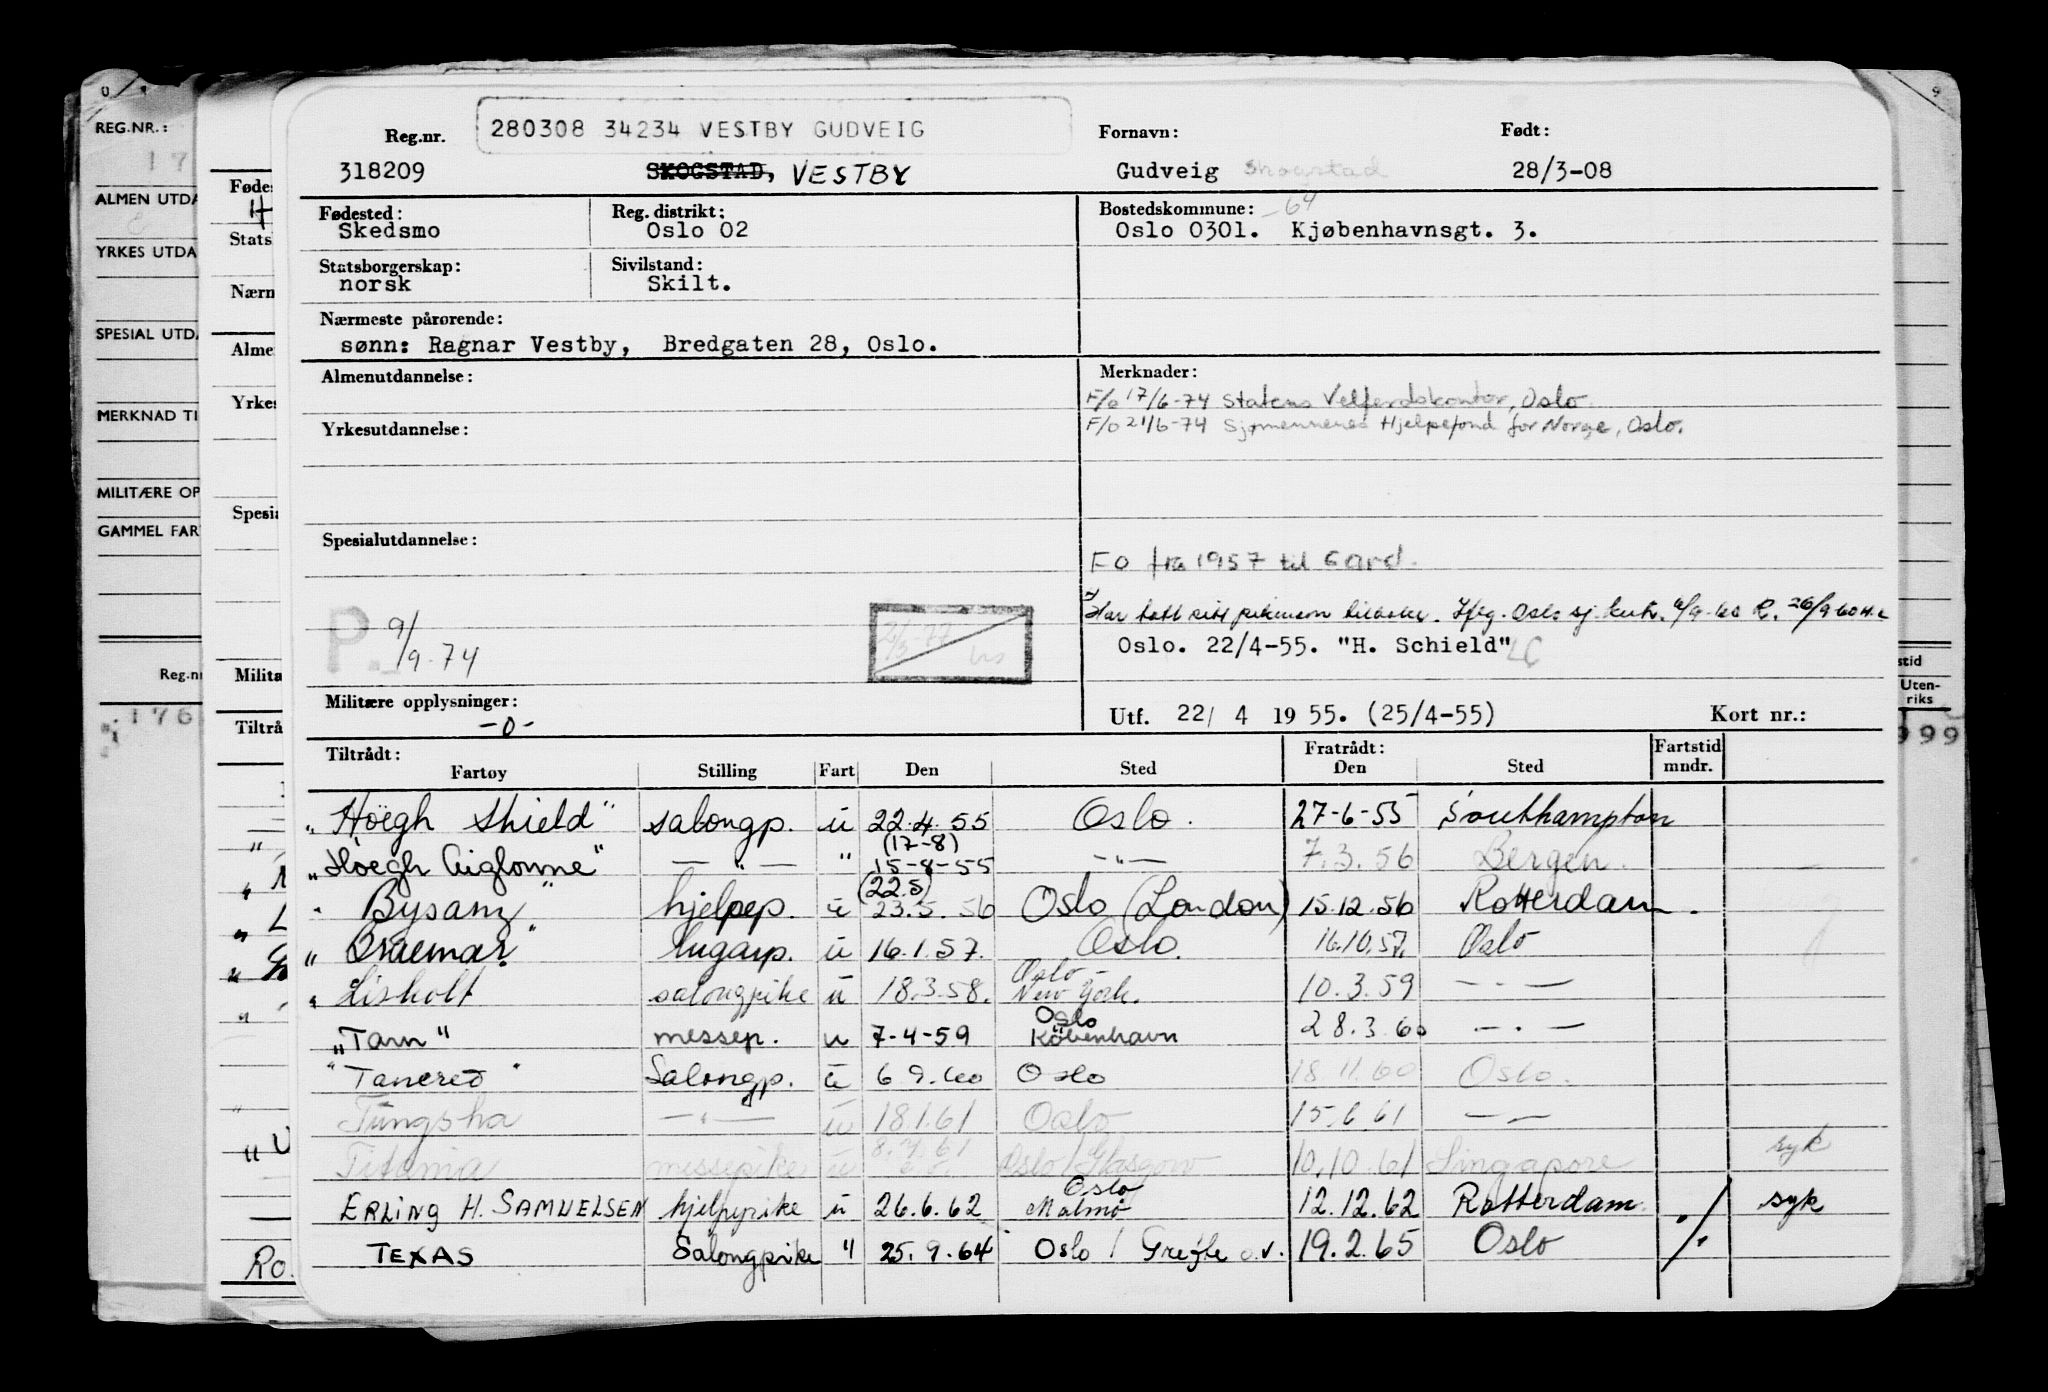 Reg.nr. 280308 34234 VESTBY GUDVEIG Fornavn: Født:
318209 SKOGSTAD, VESTBY Gudveig Skogstad 28/3-08
Fødested: Reg. distrikt: Bostedskommune: -64
Skedsmo Oslo 02 Oslo 0301. Kjøbenhavnsgt. 3.
Statsborgerskap: Sivilstand:
norsk Skilt.
Nærmeste pårørende:
sønn: Ragnar Vestby, Bredgaten 28, Oslo.
Almenutdannelse: Merknader:
F/o 17/6-74 Statens Velferdskontor, Oslo.
F/o 21/6-74 Sjømennenes Hjelpefond for Norge, Oslo.
Yrkesutdannelse:
Spesialutdannelse:
FO fra 1957 til Gard.
Har tatt sitt tilbake. Oslo sj. 6/9-60 R. 26/9 60
P. 9/9-74
Oslo. 22/4-55. "H. Schield" LC
Militære opplysninger:
-0-
Utf. 22/ 4 19 55. (25/4-55) Kort nr.:
Tiltrådt: Fratrådt: Fartstid
Fartøy Stilling Fart Den Sted Den Sted mndr.
"Höegh Shield" salongp. u 22.4.55 Oslo. 27-6-55 Southampton
"Höegh Aiglonne" — " — " (17-8) 15-8-55 — " — 7.3.56 Bergen.
"Bysanz" hjelpep. u (22.5) 23.5.56 Oslo (London) 15.12.56 Rotterdam.
"Braemar" lugarp. u 16.1.57. Oslo. 16.10.57. Oslo
"Lisholt salongpike u 18.3.58. Oslo New York. 10.3.59 — " —
"Tarn" messep. u 7-4-59 Oslo København 28.3.60 — " —
"Tancred" Salongp. u 6 9.60 Oslo 18.11.60 Oslo.
Tungsha — " — u 18.1.61 Oslo 15.6.61 — " —
Titania messepike u 8.7.61 Oslo/Glasgow 10.10.61 Singapore syk
ERLING H. SAMUELSEN hjelpepike u 26.6.62 Oslo Malmö 12.12.62 Rotterdam. ./. syk
TEXAS Salongpike " 25.9.64 Oslo / 19.2.65 Oslo
REG.NR.:
ALMEN UTDA
YRKES UTDA
SPESIAL UTDA
MERKNAD TI
MILITÆRE OP
GAMMEL FAR
Reg.nr
176
Fødes
Stats
Nærm
Alme
Yrkes
Spesia
Milita
Tiltrå
Ro.
stid
Uten-
riks
999